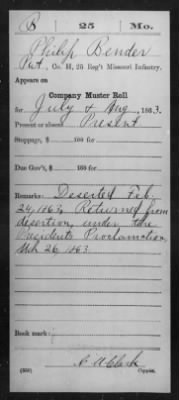 B 25 Mo.
Philip Bender
Pvt., Co. H, 25 Reg't Missouri Infantry.
Appears on
Company Muster Roll
for July & Aug, 1863.
Present or absent Present
Stoppage, $ 100 for
Due Gov't, $ 100 for
Remarks: Deserted Feb.
24, 1862, Returned from
desertion, under the
Presidents Proclamation
Mch 26, 1863
Book mark:
Clark
(358) Copyist.